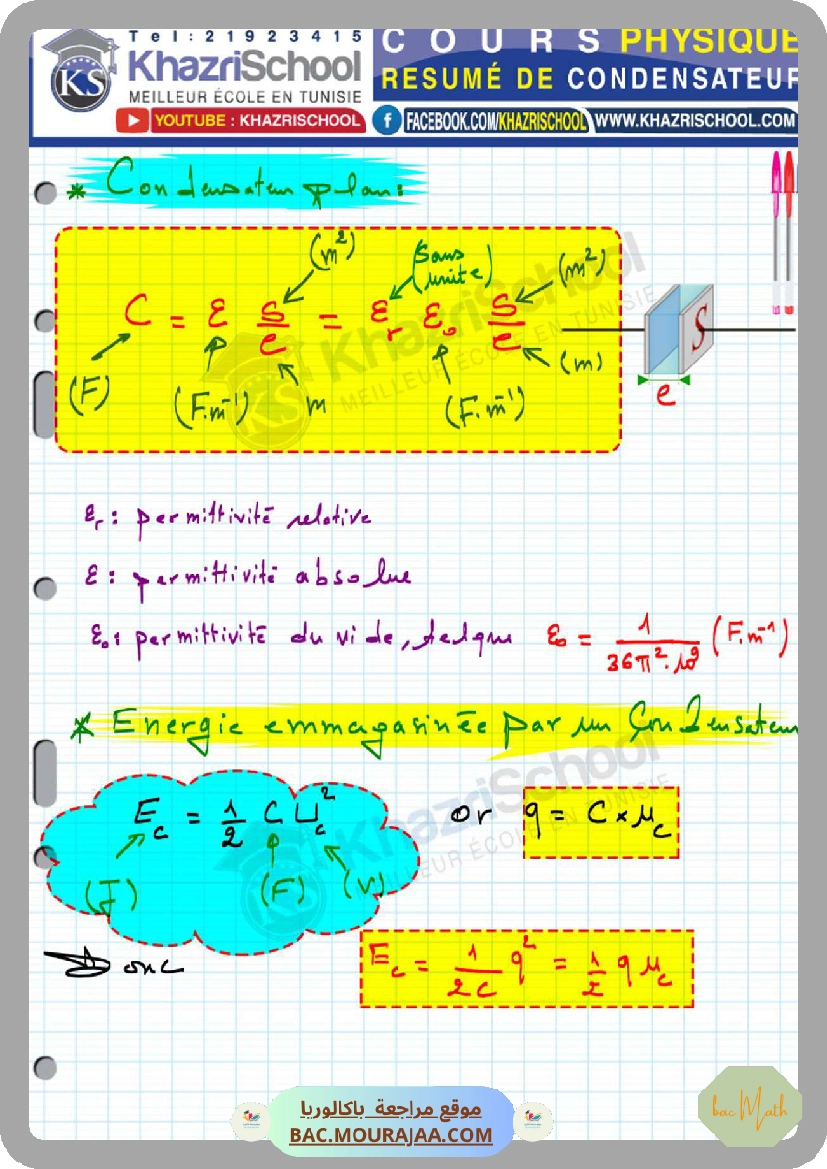 Tel:21923415
KhazriSchool
MEILLEUR ÉCOLE EN TUNISIE
COURS PHYSIQUE
RESUMÉ DE CONDENSATEUR
YOUTUBE : KHAZRISCHOOL
FACEBOOK.COM/KHAZRISCHOOL
WWW.KHAZRISCHOOL.COM
* Condensateur plan:
(m²) (sans unité) (m²)
C = ε S/e = εr ε₀ S/e
(F) (F.m⁻¹) m (F.m⁻¹) (m)
S
e
εr : permittivité relative
ε : permittivité absolue
ε₀ : permittivité du vide, telque ε₀ = 1/(36π².10⁹) (F.m⁻¹)
* Energie emmagasinée par un Condensateur
Ec = 1/2 C Uc² or q = C × uc
(J) (F) (V)
Donc Ec = 1/(2C) q² = 1/2 q uc
موقع مراجعة باكالوريا
BAC.MOURAJAA.COM
bac Math